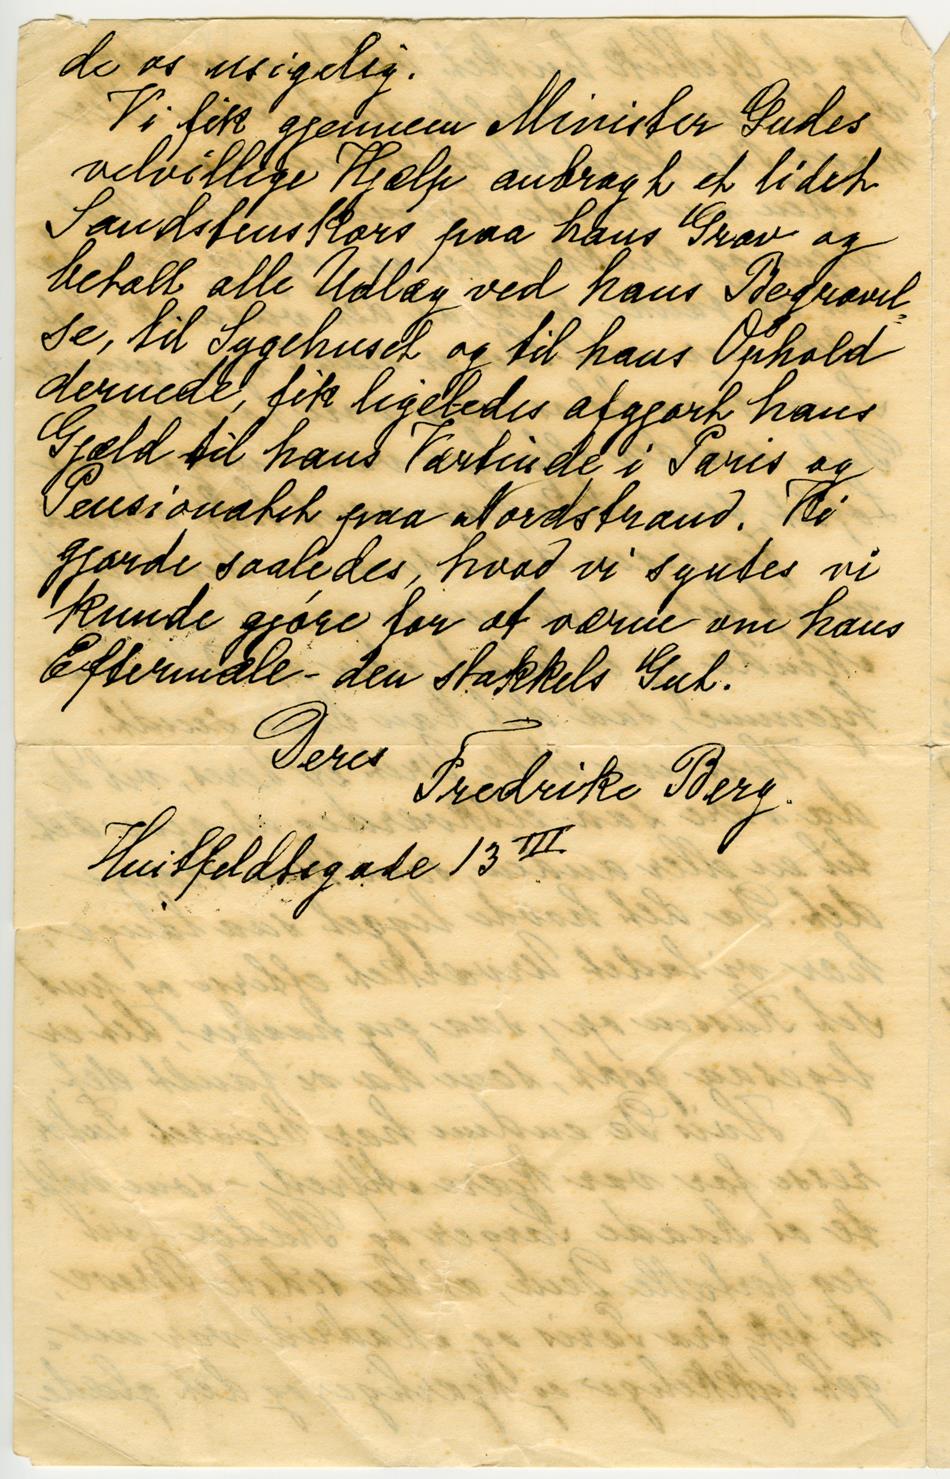 de os usigelig.
Vi fik gjennem Minister Gudes
velvillige Hjælp anbragt et lidet
Sandstenskors paa hans Grav og
betalt alle Udlæg ved hans Begravel-
se, til Sygehuset og til hans Ophold
dernede, fik ligeledes afgjort hans
Gjæld til hans Værtinde i Paris og
Pensionatet paa Nordstrand. Vi
gjorde saaledes, hvad vi syntes vi
kunde gjøre for at værne om hans
Eftermæle - den stakkels Gut.
Deres
Fredrike Berg.
Huitfeldtsgade 13 III